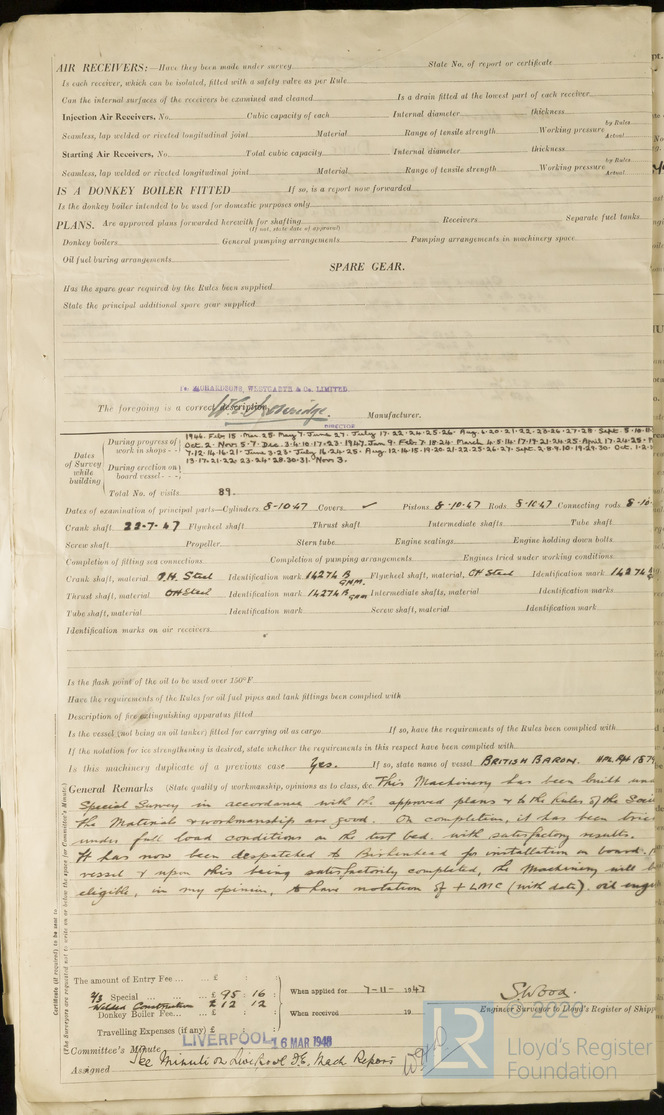 AIR RECEIVERS:—Have they been made under survey State No. of report or certificate
Is each receiver, which can be isolated, fitted with a safety valve as per Rule
Can the internal surfaces of the receivers be examined and cleaned Is a drain fitted at the lowest part of each receiver
Injection Air Receivers, No. Cubic capacity of each Internal diameter thickness
Seamless, lap welded or riveted longitudinal joint Material Range of tensile strength Working pressure by Rules Actual
Starting Air Receivers, No. Total cubic capacity Internal diameter thickness
Seamless, lap welded or riveted longitudinal joint Material Range of tensile strength Working pressure by Rules Actual
IS A DONKEY BOILER FITTED If so, is a report now forwarded
Is the donkey boiler intended to be used for domestic purposes only
PLANS. Are approved plans forwarded herewith for shafting Receivers Separate fuel tanks
(If not, state date of approval)
Donkey boilers General pumping arrangements Pumping arrangements in machinery space
Oil fuel buring arrangements
SPARE GEAR.
Has the spare gear required by the Rules been supplied
State the principal additional spare gear supplied
RICHARDSONS, WESTGARTH & Co. LIMITED.
The foregoing is a correct description Manufacturer.
DIRECTOR
Dates of Survey while building
During progress of work in shops - -
1946. Feb 15. Mar 25. May 7. June 27. July 17.22.24.25.26. Aug. 6.20.21.22.23.26.27.28 Sept. 5.10.
Oct. 2. Nov. 5.7. Dec. 3.4.10.17.23. 1947. Jan 9. Feb 7.18.24. March 4.5.14.17.19.21.24.25. April 17.24.25.
During erection on board vessel - - -
7.12.14.16.21. June 3.23. July 16.24.25. Aug. 12.14.15.19.20.21.22.25.26.27. Sept. 2.8.9.10.19.29.30. Oct. 1.2.
13.17.21.22.23.24.28.30.31. Nov 3.
Total No. of visits 89.
Dates of examination of principal parts—Cylinders 8-10-47 Covers ✓ Pistons 8-10-47 Rods 8-10-47 Connecting rods 8-10-
Crank shaft 23-7-47 Flywheel shaft Thrust shaft Intermediate shafts Tube shaft
Screw shaft Propeller Stern tube Engine seatings Engine holding down bolts
Completion of fitting sea connections Completion of pumping arrangements Engines tried under working conditions
Crank shaft, material O.H. Steel Identification mark 14274 B GHM. Flywheel shaft, material OH Steel Identification mark 14274
Thrust shaft, material OH Steel Identification mark 14274 B GHM Intermediate shafts, material Identification marks
Tube shaft, material Identification mark Screw shaft, material Identification mark
Identification marks on air receivers
Is the flash point of the oil to be used over 150°F.
Have the requirements of the Rules for oil fuel pipes and tank fittings been complied with
Description of fire extinguishing apparatus fitted
Is the vessel (not being an oil tanker) fitted for carrying oil as cargo If so, have the requirements of the Rules been complied with
If the notation for ice strengthening is desired, state whether the requirements in this respect have been complied with
Is this machinery duplicate of a previous case Yes. If so, state name of vessel BRITISH BARON.
General Remarks (State quality of workmanship, opinions as to class, &c. This Machinery has been built
Special Survey in accordance with the approved plans & to the Rules of the
the Materials & workmanship are good. On completion, it has been
under full load conditions on the test bed, with satisfactory results.
It has now been despatched to Birkenhead for installation on board.
vessel & upon this being satisfactorily completed, the Machinery will
eligible, in my opinion, to have notation of + LMC (with date). oil
Certificate (if required) to be sent to
(The Surveyors are requested not to write on or below the space for Committee's Minute.)
The amount of Entry Fee ... £ : :
2/3 Special ... ... £ 95 : 16 When applied for 7-11-1947
Welded Construction £ 12 : 12
Donkey Boiler Fee... £ : : When received 19
Travelling Expenses (if any) £ : :
S Wood.
Engineer Surveyor to Lloyd's Register of Shipp
LIVERPOOL 16 MAR 1948
Committee's Minute
Assigned See Minute on Liverpool F.E. Mach Report
LR
© 2020
Lloyd's Register
Foundation